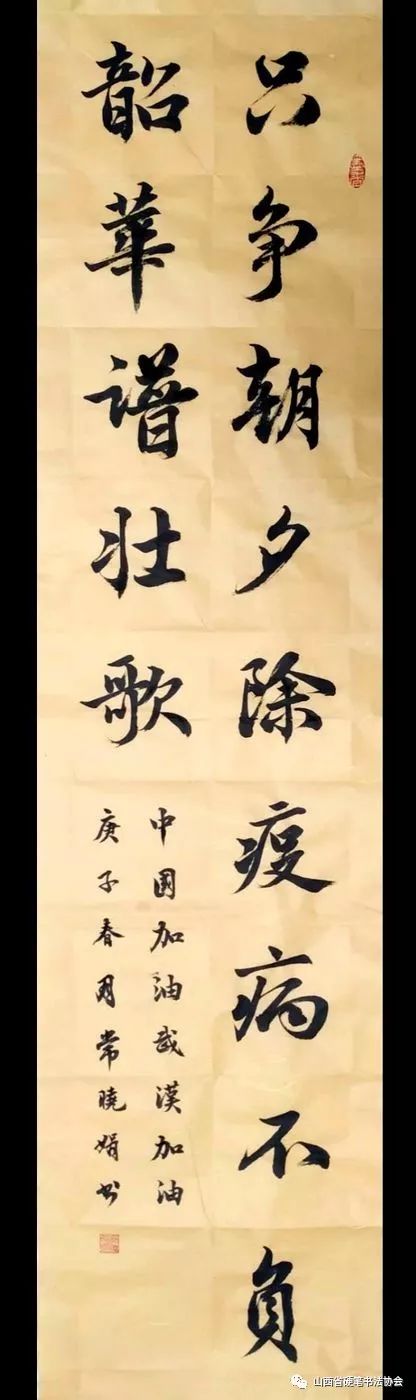 只争朝夕除疫病不负
韶華譜壮歌
中國加油武漢加油
庚子春月常曉娟书
山西省硬笔书法协会